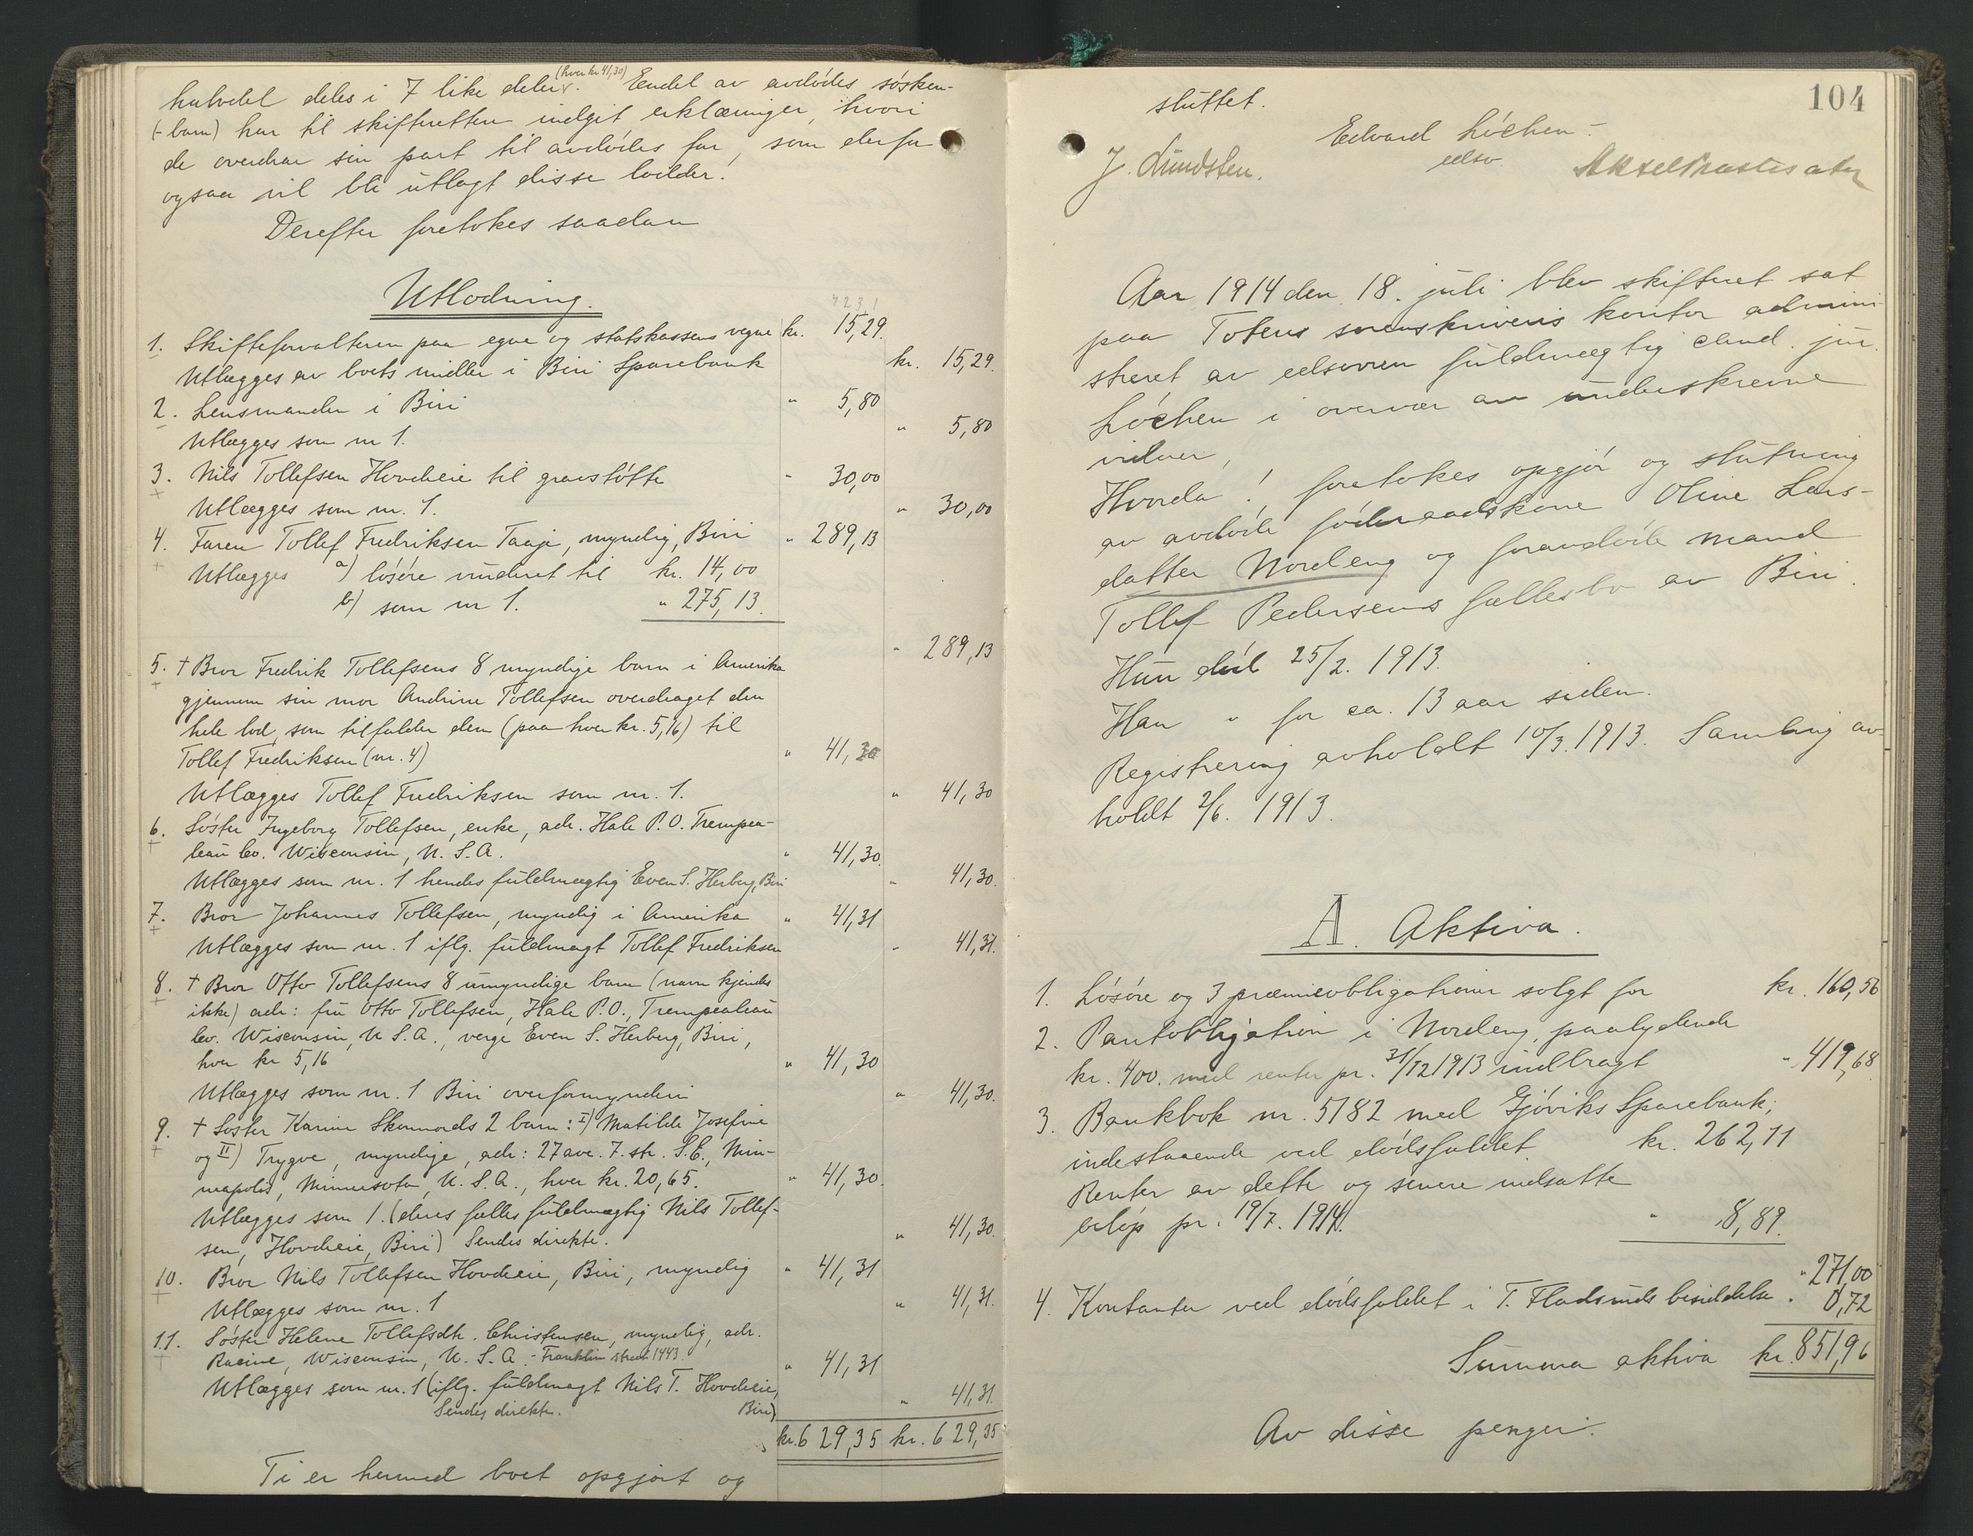 halvdel deles i 7 like deler (hver kr 41,30). Endel av avdødes søsken-
(-barn) har til skifteretten indgit erklæringer, hvori
de overdrar sin part til avdødes far, som derfor
ogsaa vil bli utlagt disse lodder.
Derefter foretokes saadan
Utlodning.
1. Skifteforvalteren paa egne og statskassens vegne kr. 15,29.
Utlægges av boets midler i Biri Sparebank kr. 15,29.
2. Lensmanden i Biri " 5,80
Utlægges som nr 1. " 5,80
3. Nils Tollefsen Hovdeie til gravstøtte " 30,00
Utlægges som nr. 1. " 30,00
4. Faren Tollef Fredriksen Taaje, myndig, Biri " 289,13
Utlægges a) løsøre vurderet til kr. 14,00
b) som nr 1. " 275,13.
" 289,13
5. + Bror Fredrik Tollefsens 8 myndige barn i Amerika
gjennem sin mor Andrine Tollefsen overdraget den
hele lod, som tilfalder dem (paa hver kr. 5,16) til
Tollef Fredriksen (nr. 4) " 41,30
Utlægges Tollef Fredriksen som nr. 1. " 41,30
6. Søster Ingeborg Tollefsen, enke, adr. Hale P.O. Trempea-
leau Co. Wisconsin, U.S.A. " 41,30.
Utlægges som nr. 1 hendes fuldmægtig Even S. Herberg, Biri " 41,30.
7. Bror Johannes Tollefsen, myndig i Amerika " 41,31
Utlægges som nr. 1 iflg. fuldmagt Tollef Fredriksen " 41,31.
8. + Bror Otto Tollefsens 8 umyndige barn (navn kjendes
ikke) adr: fru Otto Tollefsen, Hale P.O., Trempealeau
Co. Wisconsin, U.S.A., verge Even S. Herberg, Biri,
hver kr 5,16 " 41,30
Utlægges som nr. 1 Biri overformynderi " 41,30.
9. + Søster Karine Skonnords 2 barn: I) Matilde Josefine
og II) Trygve, myndige, adr: 27 ave. 7. str. S.E., Min-
neapolis, Minnesota, U.S.A., hver kr. 20,65. " 41,30.
Utlægges som 1. (deres fælles fuldmægtig Nils Tollef-
sen, Hovdeie, Biri) Sendes direkte. " 41,30.
10. Bror Nils Tollefsen Hovdeie, Biri, myndig " 41,31
Utlægges som nr. 1 " 41,31.
11. Søster Helene Tollefsdtr. Christensen, myndig, adr.
Racine, Wisconsin, U.S.A. - Franklin street 1443. " 41,31
Utlægges som nr. 1 (iflg. fuldmagt Nils T. Hovdeie, " 41,31.
Sendes direkte. Biri)
kr. 629,35 kr. 629,35
Ti er hermed boet opgjort og
104
sluttet.
Edvard Løchen.
edsv.
J. Lundsten.
Aar 1914 den 18. juli blev skifteret sat
paa Totens sorenskriveris kontor admini-
streret av edsvoren fuldmægtig cand. jur.
Løchen i overvær av underskrevne
vidner,
Hvorda! foretokes opgjør og slutning
av avdøde føderaadskone Oline Lars-
datter Nordeng og foravdøde mand
Tollef Pedersens fællesbo av Biri.
Hun død 25/2. 1913.
Han " for ca. 13 aar siden.
Registrering avholdt 10/3. 1913. Samling av-
holdt 2/6. 1913.
A. Aktiva.
1. Løsøre og 3 præmieobligationer solgt for kr. 160,56
2. Pantobligation i Nordeng, paalydende
kr. 400. med renter pr. 31/12 1913 inddragt " 419,68
3. Bankbok nr. 5182 med Gjøviks Sparebank;
indestaaende ved dødsfaldet. kr. 262,11
Renter av dette og senere indsatte
beløp pr. 19/7. 1914. " 8,89.
" 271,00
4. Kontanter ved dødsfaldet i T. Fladsruds besiddelse " 0,72
Summa aktiva kr. 851,96
Av disse penger.